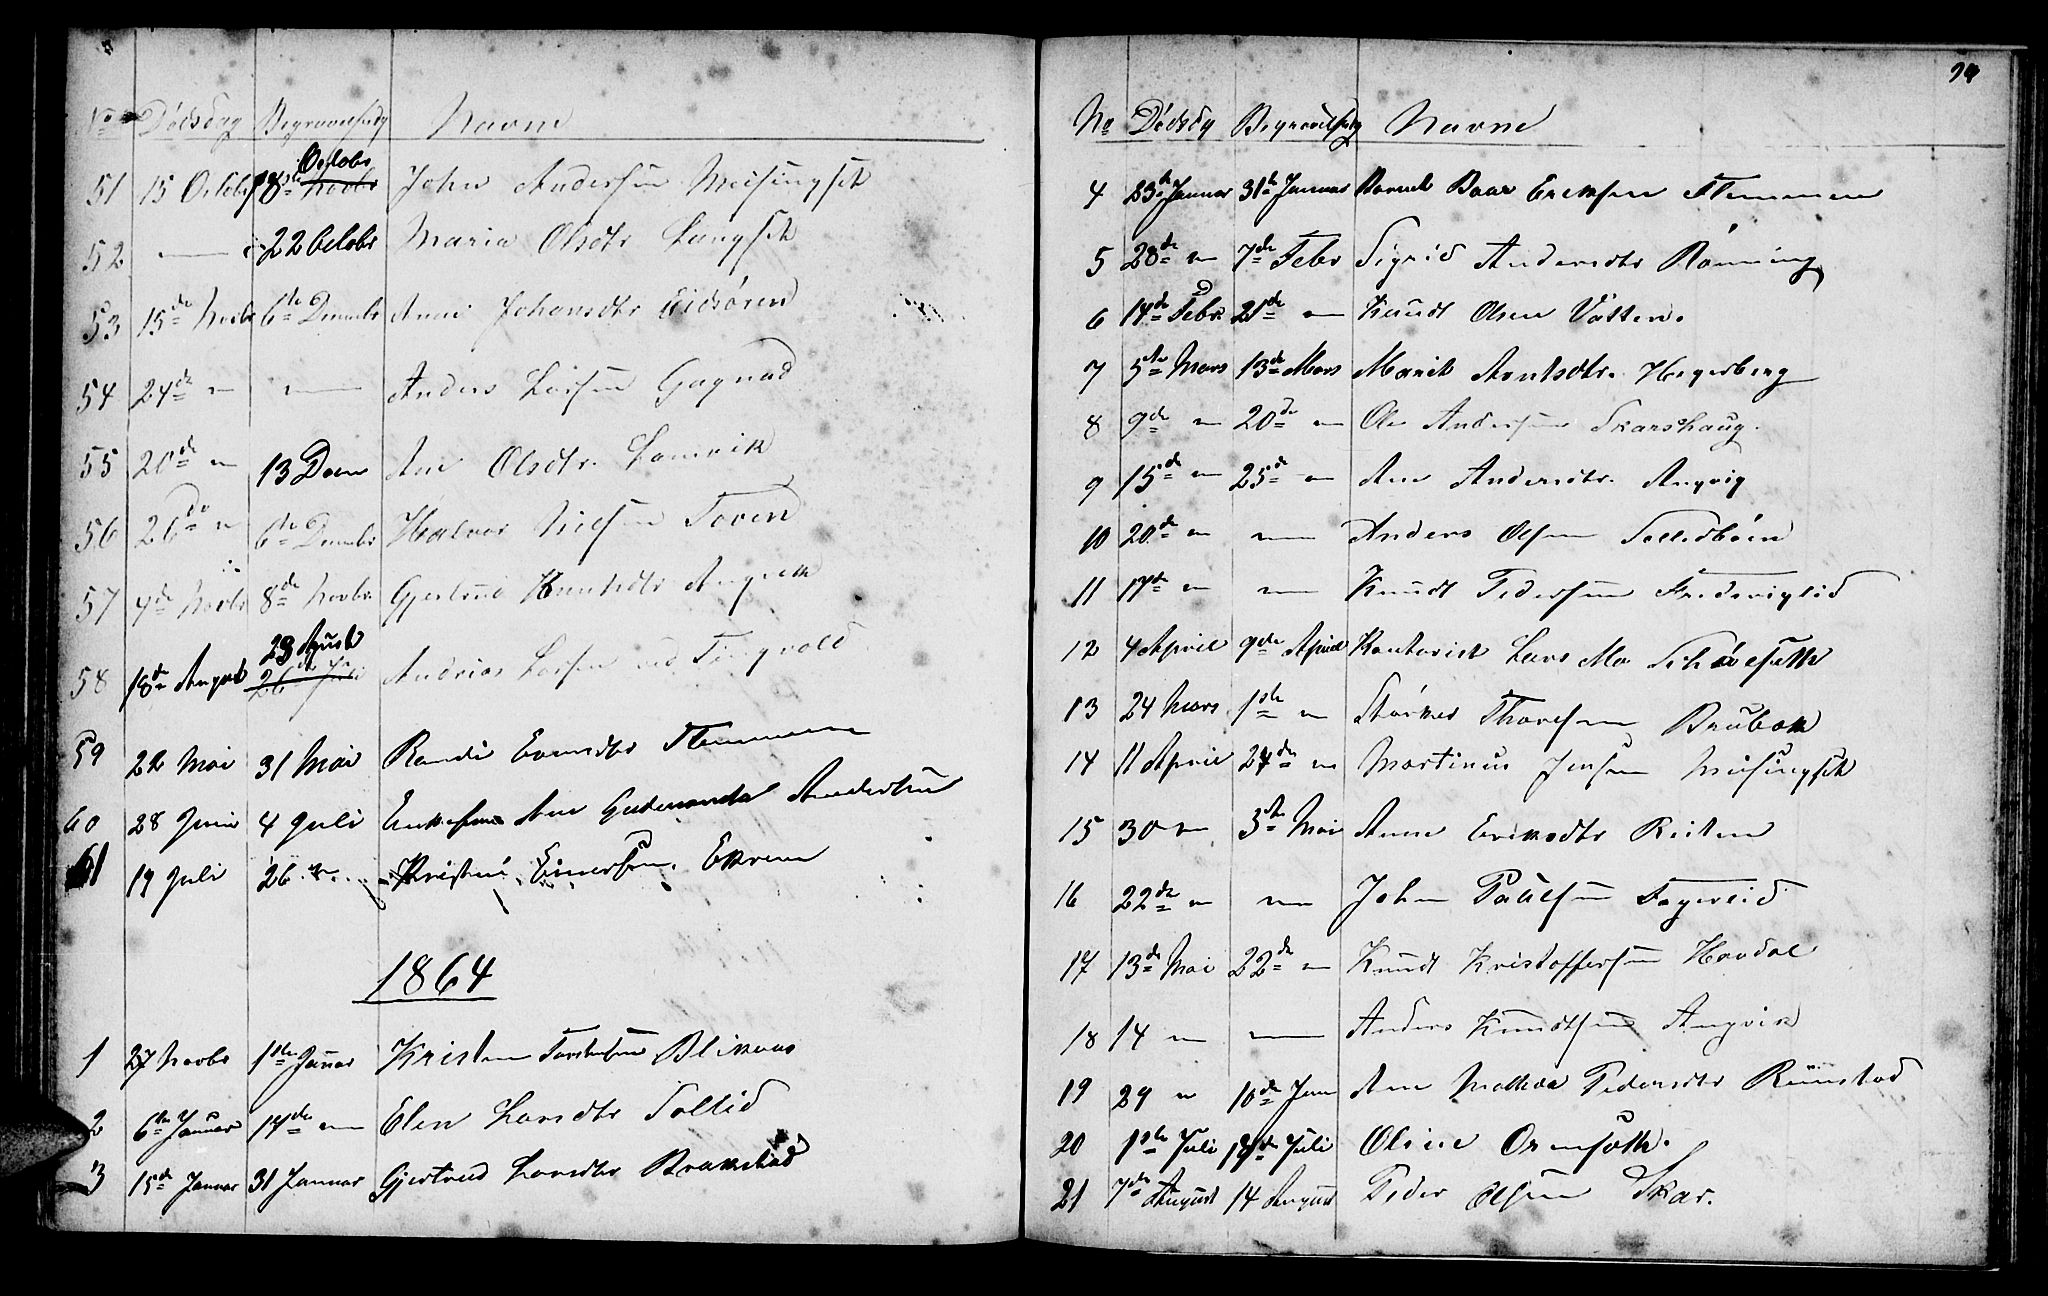 No Dödsdag Begravelsdg Navne
51 15 Octobr 18de Novbr Octobr John Andersen Meisingset
52 — 22 Octobr Maria Olsdtr Langset
53 15de Novbr 6te Decembr Ane Johansdtr Eidsören
54 24de " — Anders Larsen Gagnad
55 20de " 13 Decm Ane Olsdtr. Lomvik
56 26de " 6te Decembr Halvor Nielsen Toven
57 4de Novbr 8de Novbr Gjertrud Knutsdtr Angvik
58 18de August 23 August 26de Juli Andrias Larsen Tingvold
59 22 Mai 31 Mai Randi Evensdtr Flemmen
60 28 Juni 4 Juli Enkefrue Ane
61 19 Juli 26 " Kristine Einersen. Ekren
1864
1 27 Novbr 1ste Januar Kristen Torstensen Blikaas
2 6te Januar 17de — Elen Larsdtr Sollid
3 15de Januar 31 Januar Gjertrud Larsdtr Brakstad
94
No Dödsdg Begravelsdg Navne
4 23de Januar 31te Januar Baar Eriksen Flemmen
5 28de " 7de Febr Sigrid Andersdtr Rönning
6 14de Febr. 21de " Knudt Olsen Vaatten.
7 5te Mars 13de Mars Marit Arntsdtr. Hegerberg
8 9de " 20de " Ole Andersen Skarshaug.
9 15de " 25de " Ane Andersdtr. Angvig
10 20de " — Anders Olsen Solledböen
11 17de " — Knudt Pedersen Frederiglid
12 4 April 9de April Lars
13 24 Mars 1ste " Störker Thoresen Brubak
14 11 April 24de " Martinus Jensen Meisingset
15 30 " 3de Mai Anne Eriksdtr Reiten
16 22de " — John Paulsen Fagerlid
17 13de Mai 22de " Knudt Kristoffersen Hovdal
18 14 " — Anders Knudtsen Angvik
19 29 " 10de Juni Ane Malene Pedersdtr Rimstad
20 1ste Juli Juli Oline Ormsæth.
21 7de August 14 August Peder Olsen Skar.